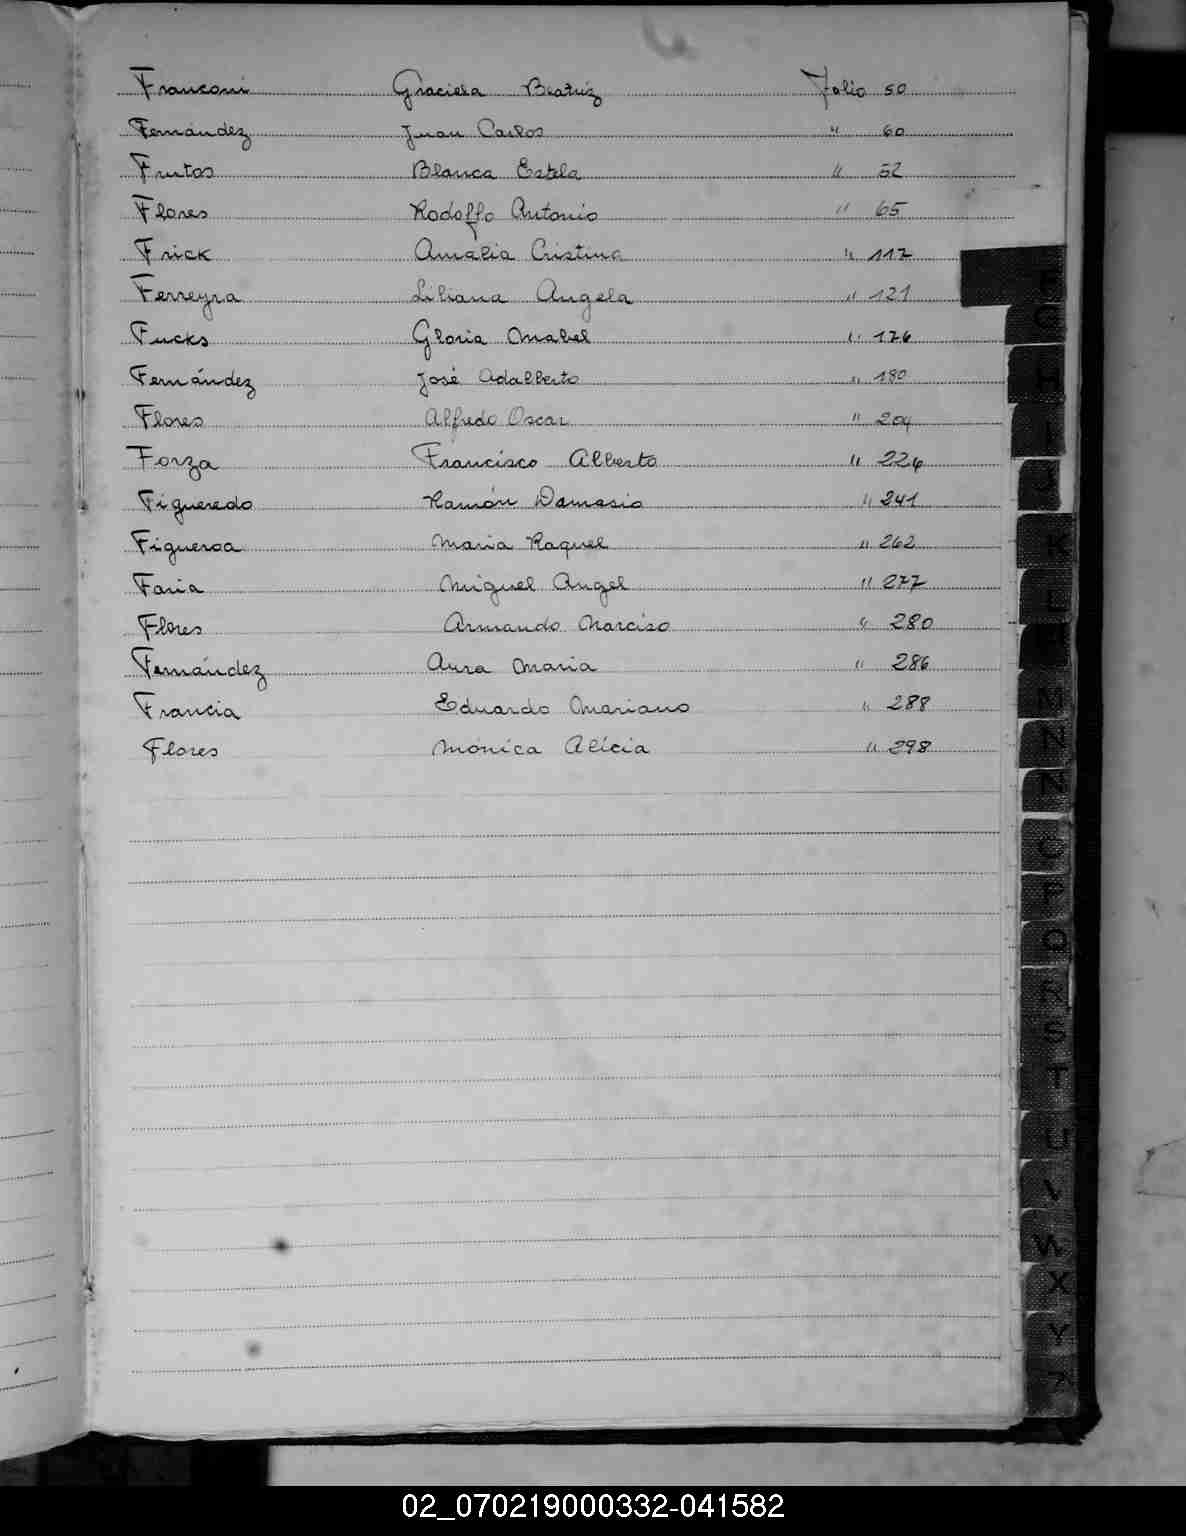 Franconi Graciela Beatriz Folio 50
Fernández Juan Carlos " 60
Frutos Blanca Estela " 52
Flores Rodolfo Antonio " 65
Frick Amalia Cristina " 117
Ferreyra Liliana Angela " 121
Fucks Gloria Mabel " 176
Fernández José Adalberto " 180
Flores Alfredo Oscar " 204
Forza Francisco Alberto " 226
Figueredo Ramón Damasio " 241
Figueroa Maria Raquel " 262
Faria Miguel Angel " 277
Flores Armando Narciso " 280
Fernández Aura Maria " 286
Francia Eduardo Mariano " 288
Flores Mónica Alicia " 298
F
G
H
I
J
K
L
M
N
P
Q
R
S
T
U
V
W
X
Y
02_070219000332-041582